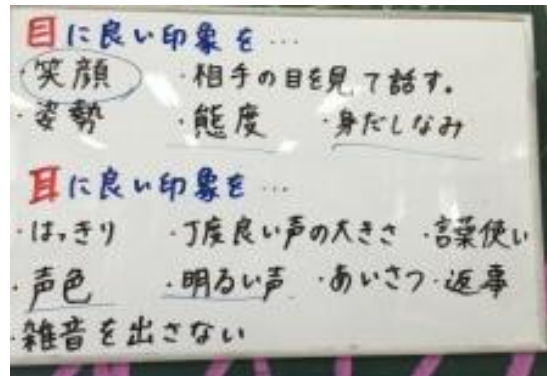 目に良い印象を…
・笑顔 ・相手の目を見て話す。
・姿勢 ・態度 ・身だしなみ
耳に良い印象を…
・はっきり ・丁度良い声の大きさ ・言葉使い
・声色 ・明るい声 ・あいさつ ・返事
・雑音を出さない